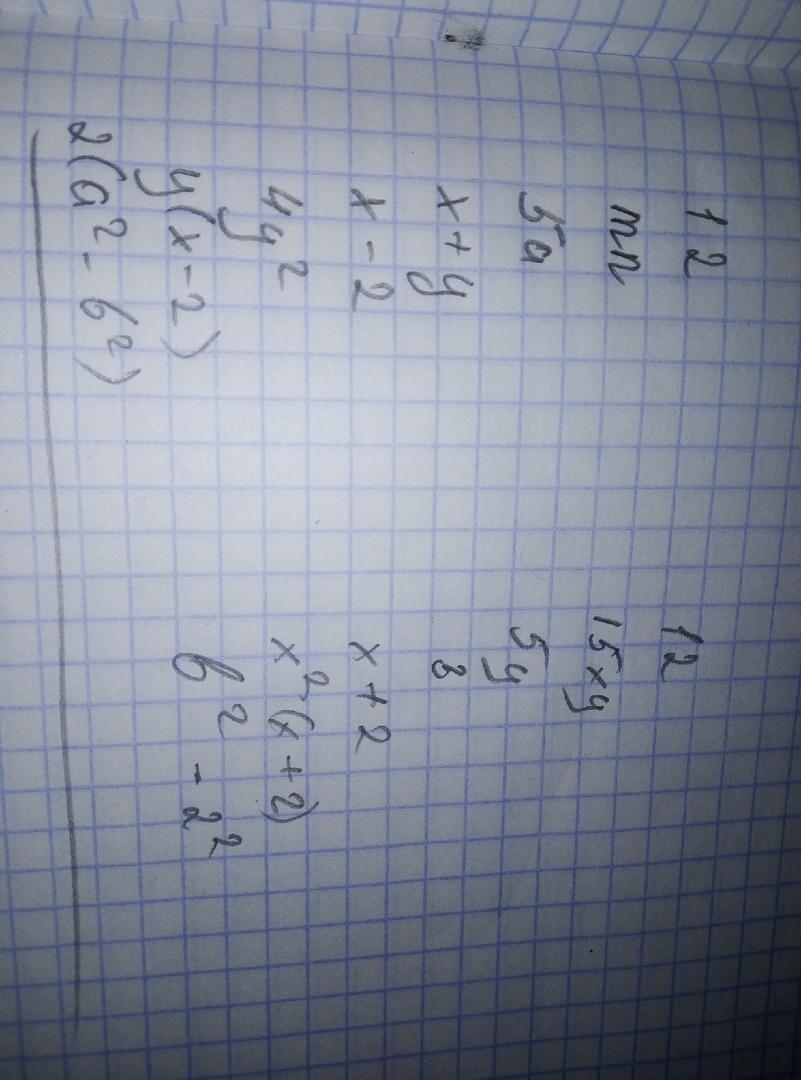 12
mn
5a
x+y
x-2
4y²
y(x-2)
2(a²-b²)
12
15xy
5y
3
x+2
x²(x+2)
b²-2²